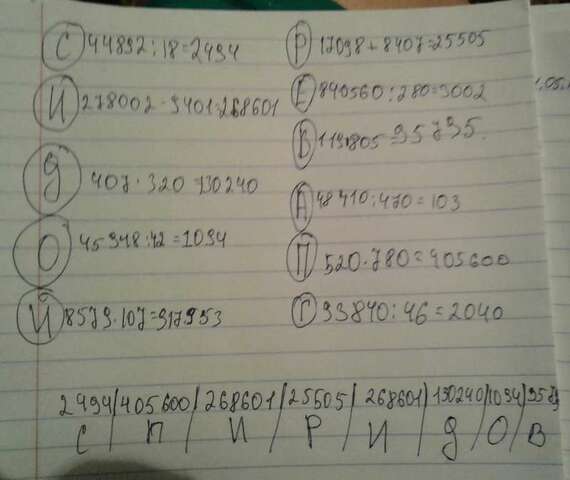 С 44892:18=2494
И 278002-9401=268601
Д 407·320 130240
О 45948:42=1094
Й 8579·107=917953
Р 17098+8407=25505
Е 840560:280=3002
В 35735.
А 48410:470=103
П 520·780=405600
Г 93840:46=2040
2494/405600/268601/25505/268601/130240/1094/
С / П / И / Р / И / Д / О / В